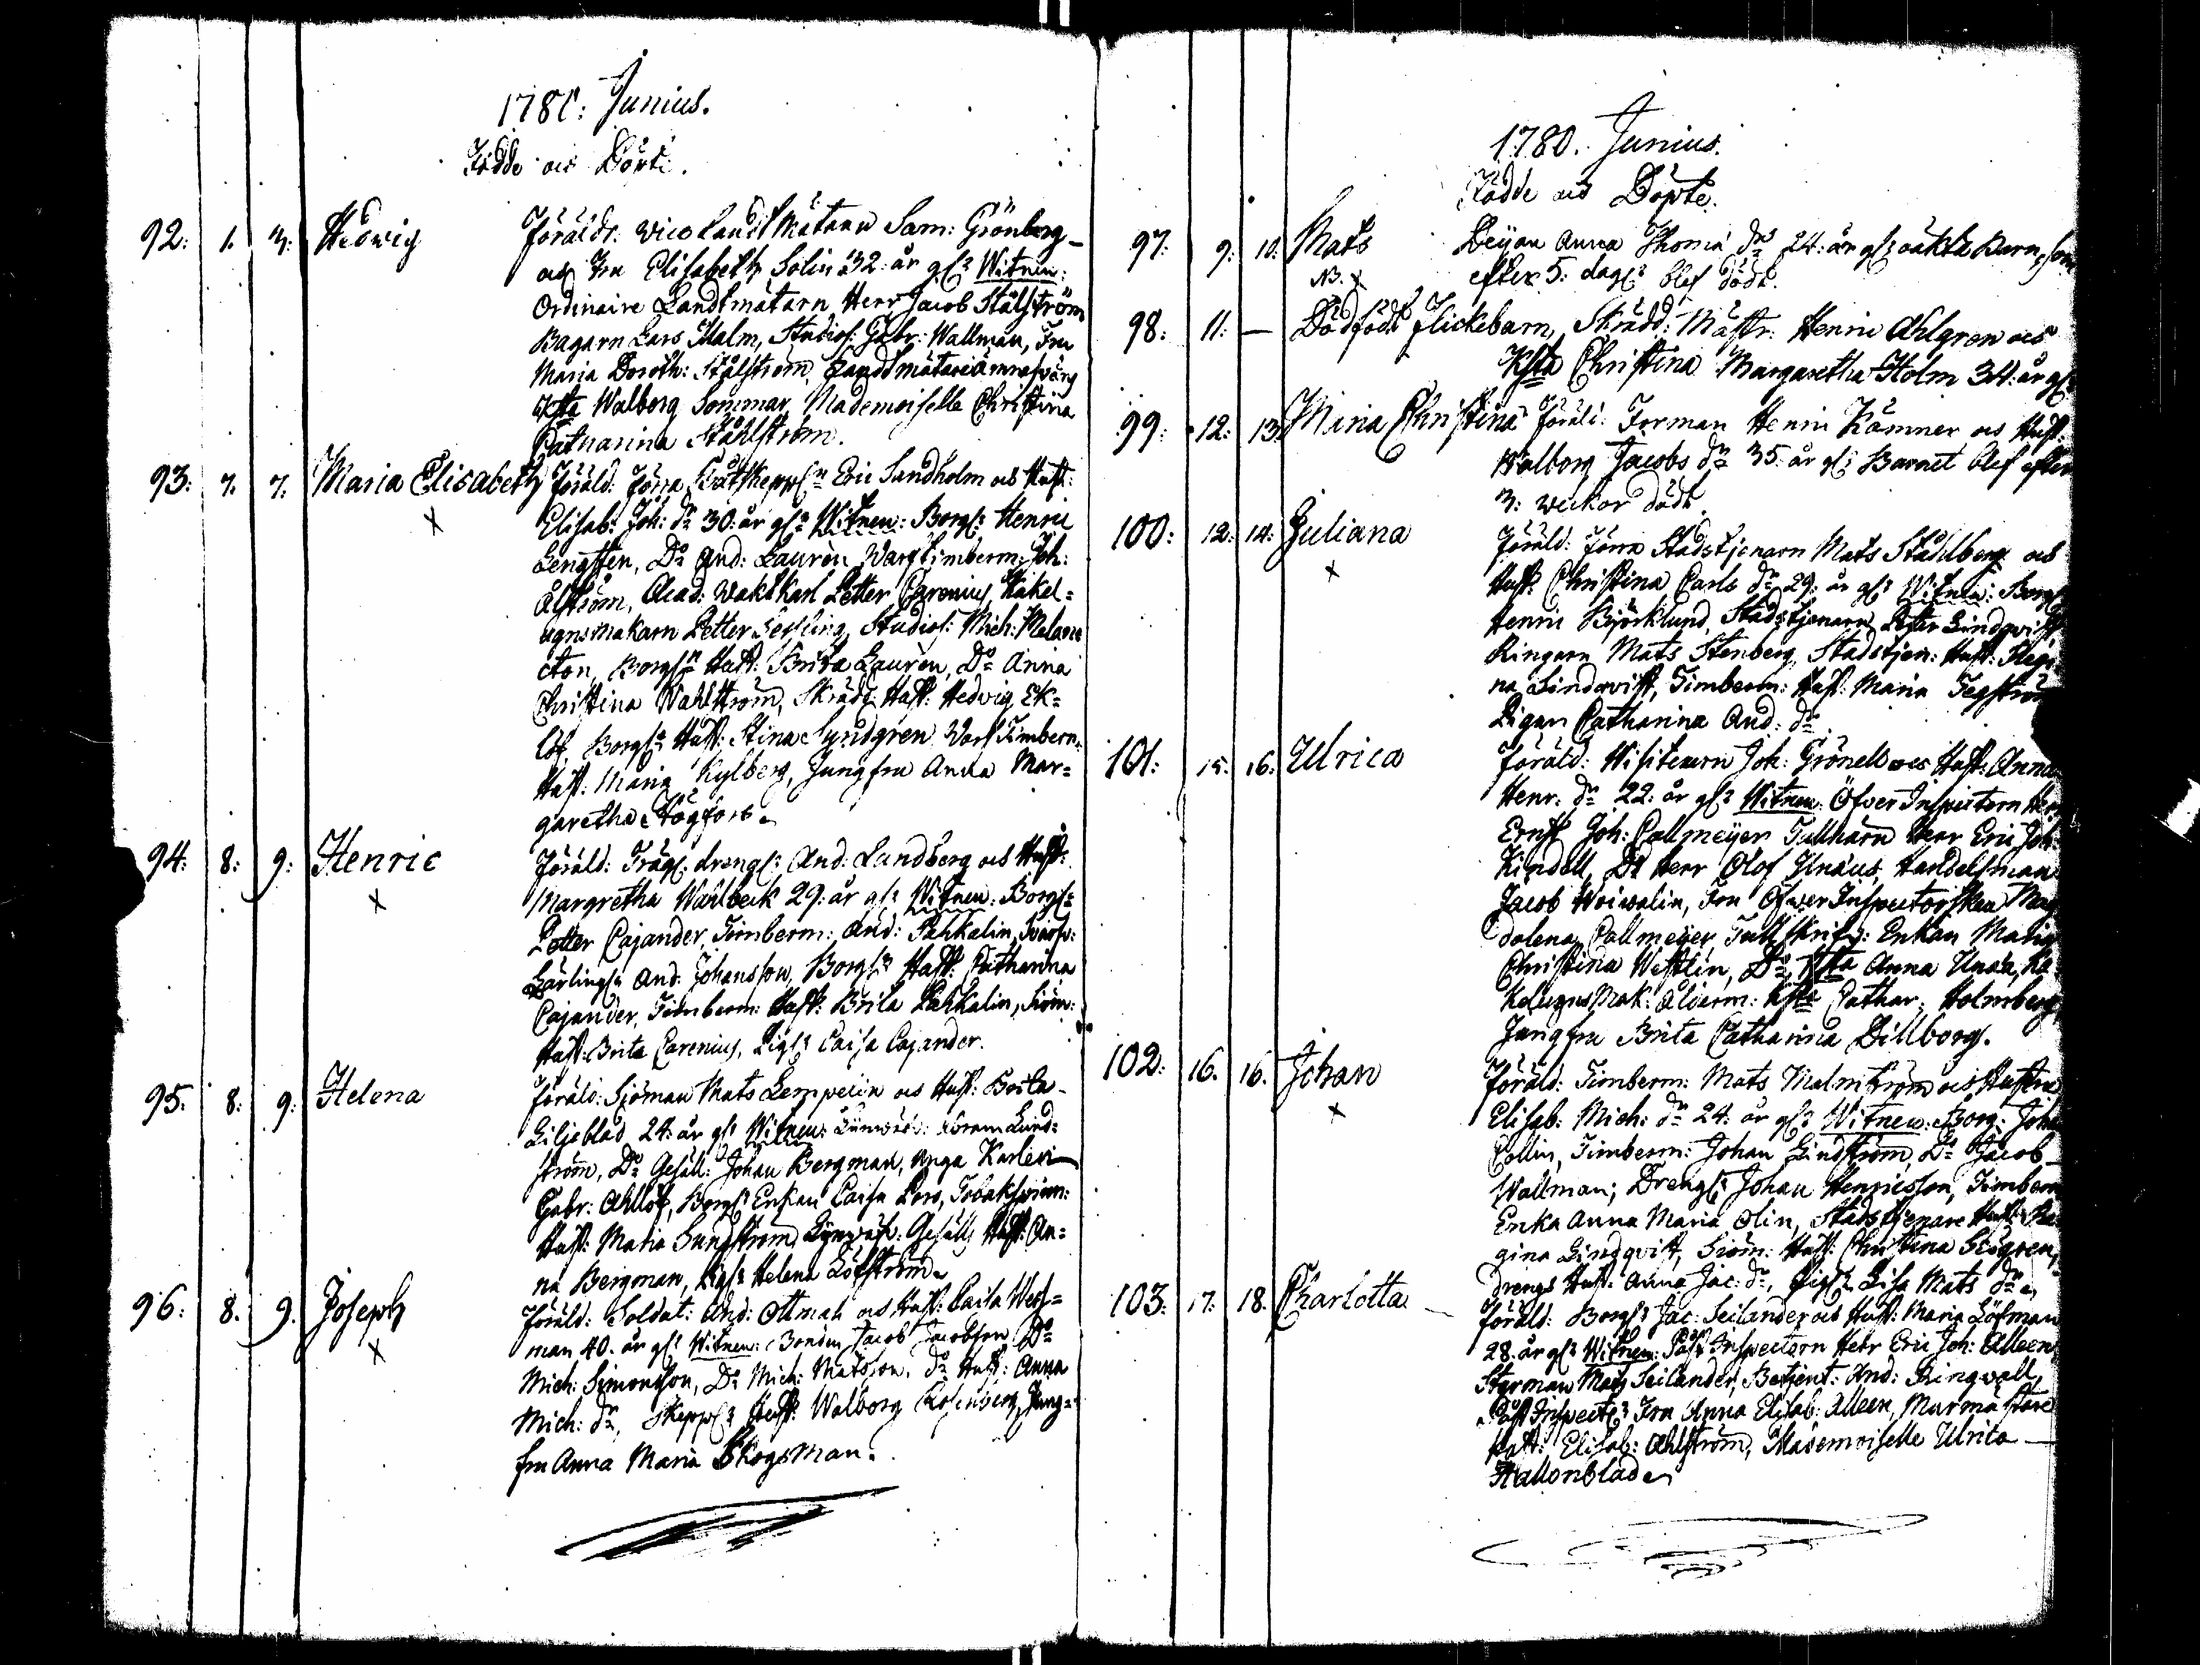 1780: Junius.
Födde och Döpte.
92: 1. 3: Hedwig Föräldr: Vice Landtmätaren Sam: Grönberg
och Fru Elisabeth Solin 32: år gl: Witnen:
Ordinaire Landtmätarn Herr Jacob Stålström
Bagarn Lars Malm, Studios: Gabr: Wallman, Fru
Maria Doroth: Stålström, Landtmätare
Hstu Walborg Sommar, Mademoiselle Christina
Catharina Ståhlström.
93: 7. 7. Maria Elisabeth Föräld: Förra Båtskepp: Eric Sandholm och Hust:
Elisab: Joh: dr 30: år gl: Witnen: Borg: Henric
Lengsten, Do And: Lauren, Warfs Timberm: Joh:
Alström, Acad: Waktkarl Petter Carenius, Kakel=
ugnsmakarn Petter Studios: Mich: Melanc
cton, Borg: Hust: Brita Lauren, Do Anna
Christina Wahlström, Skrädd: Hust: Hedvig Ek=
löf, Borg: Hust: Stina Sundgren Warfs Timberm:
Hust: Maria Kylberg, Jungfru Anna Mar=
garetha Högfors.
94: 8: 9: Henric Föräld: Trägs: drengs: And: Landberg och Hust:
Margretha Wahlbeck 29: år gl: Witnen: Borg:
Petter Cajander, Timberm: And: Pahkalin, Svarfv:
Lärling: And: Johansson, Borg: Hust: Catharina
Cajander, Timberm: Hust: Brita Pahkalin, Siöm:
Hust: Brita Carenius, Pig: Caisa Cajander.
95: 8: 9: Helena Föräld: Siöman Mats Lempelin och Hust: Brita
Liljeblad 24: år gl: Witnen: Abram Lund=
ström, Do Gesäll: Johan Bergman, Unga Karlen
Gabr: Ahllöf, Borg: Enkan Caisa Pors, Tobakspinn:
Hust: Maria Sundström, Gesälls Hust: An=
na Bergman, Pig: Helena Löfström
96: 8. 9. Joseph Föräld: Soldat: And: Ottman och Hust: Caisa Wess=
man 40. år gl: Witnen: Bonden Jacob Jacobson Do
Mich: Simonsson, Do Mich: Matsson, Do Hust: Anna
Mich: dr, Skepp: Hust: Walborg Rosenberg, Jung=
fru Anna Maria Skogsman.
1780. Junius.
Födde och Döpte.
97: 9: 10: Mats Peijan Anna Thomæ dr 24: år gl: oäkta Barn, som
NB. x efter 5: dag: blef dödt.
98: 11: — Dödfödt flickebarn, Skrädd: Mästr: Henric Ahlgren och
Hsta Christina Margaretha Holm 34: år gl:
99: 12: 13: Maria Christina Föräld: Forman Henric Kämner och Hust:
Walborg Jacobs dr 35: år gl: Barnet blef efter
3: weckor dödt.
100: 12: 14: Juliana Föräld: Förra Stadstjenarn Mats Ståhlberg och
Hust: Christina Carls dr 29: år gl: Witnen: Borg:
Henric Björklund, Stadstjenarn Petter Lindqvist
Ringarn Mats Stenberg, Stadstjen: Hust: Regi
na Lindqvist, Timberm: Hust: Maria Tegström
Pigan Catharina And: dr.
101: 15: 16: Ulrica Föräld: Wisiteurn Joh: Grönell och Hust: Anna
Henr: dr 22: år gl: Witnen: Öfver Inspectorn Herr
Ernst Joh: Callmeijer Tullnärn Herr Eric Joh:
Kindell, Do Herr Olof Unæus, Handelsman
Jacob Woiwalin, Fru Öfver Inspectorskan Mag
dalena Callmeijer, Tullskrif: Enkan Maria
Christina Westlin, Do Hsta Anna Unæa, Ka
kelugns Mak: Ålderm: Hsta Cathar: Holmberg
Jungfru Brita Catharina Dillborg.
102: 16. 16. Johan Föräld: Timberm: Mats Malmström och Hustru
Elisab: Mich: dr 24: år gl: Witnen: Borg: Joh:
Collin, Timberm: Johan Lindström, Do Jacob
Wallman, Dreng: Johan Henricsson, Timberm
Enka Anna Maria Olin, Stadstjenare Hust: Re
gina Lindqvist, Siöm: Hust: Christina Sjögren,
drengs Hust: Anna Jac: dr, Pig: Lisa Mats dr
103: 17: 18. Charlotta Föräld: Borg: Jac: Seilander och Hust: Maria Löfman
28: år gl: Witnen: Pást Inspectorn Herr Eric Joh: Alleen
Styrman Mats Seilander, Betjent: And: Ringwall,
Påst Inspect: Fru Anna Elisab: Alleen, Murmästare
Hust: Elisab: Ahlström, Mademoiselle Ulrica
Hallonblad